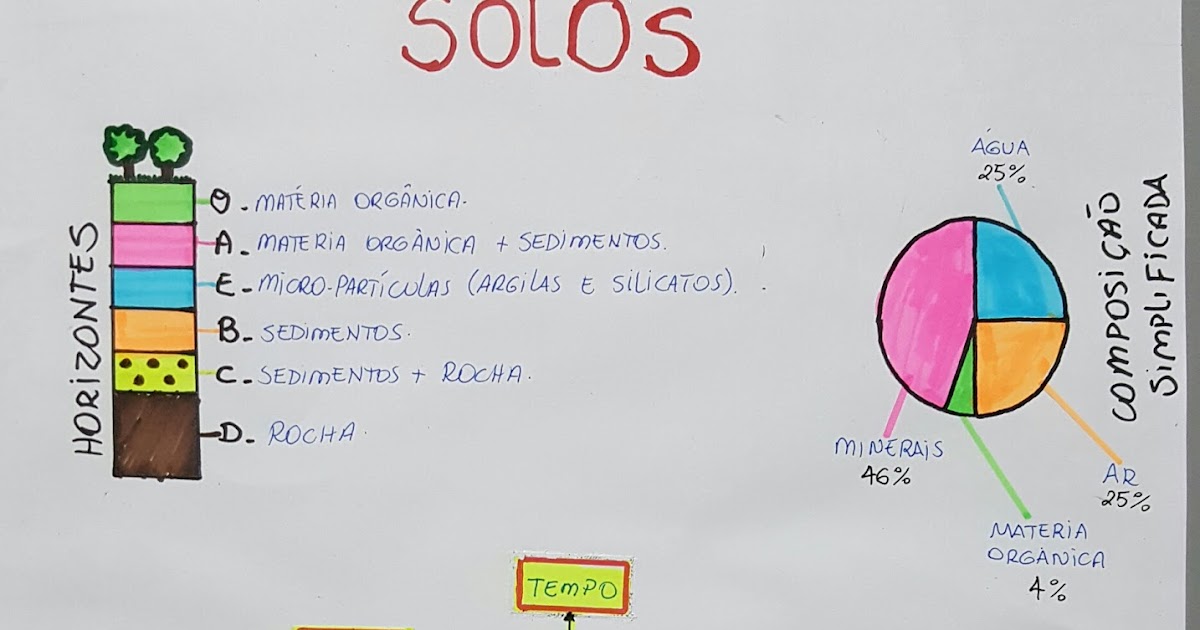 SOLOS
HORIZONTES
O - MATÉRIA ORGÂNICA.
A - MATERIA ORGÂNICA + SEDIMENTOS.
E - MICRO-PARTÍCULAS (ARGILAS E SILICATOS).
B - SEDIMENTOS.
C - SEDIMENTOS + ROCHA.
D - ROCHA.
COMPOSIÇÃO
SIMPLIFICADA
ÁGUA
25%
MINERAIS
46%
AR
25%
MATERIA
ORGÂNICA
4%
TEMPO